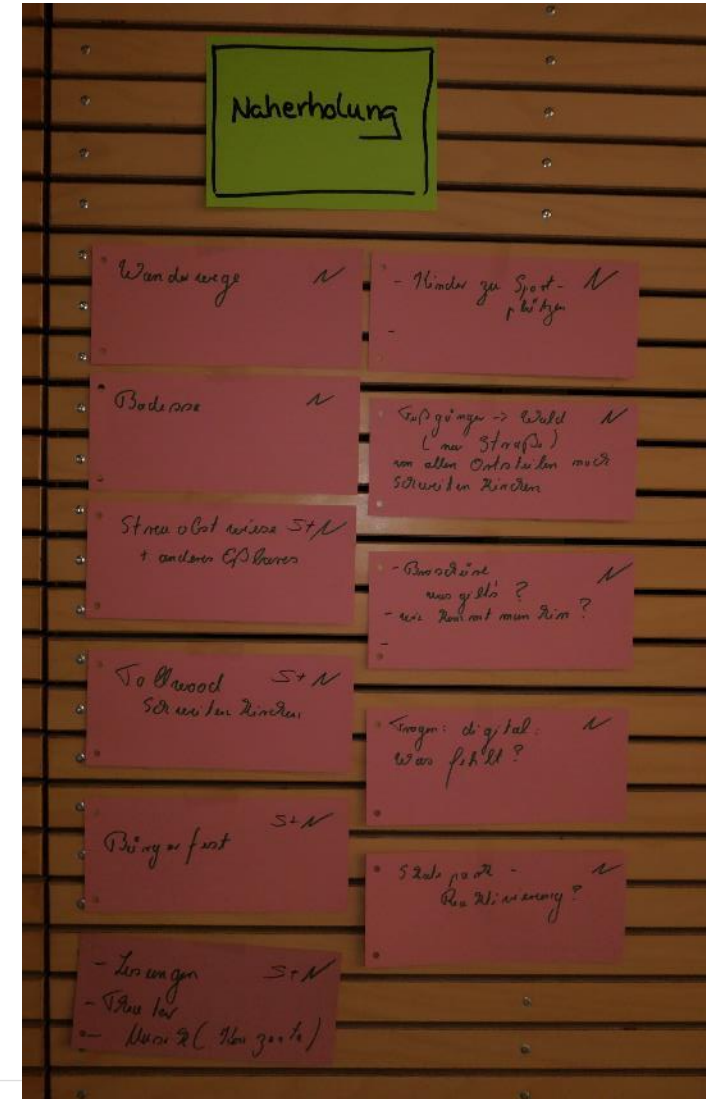 Naherholung
Wanderwege N
Badesee N
Streuobstwiese S+N
+ anderes Eßbares
Tollwood S+N
Schweitenkirchen
Bürgerfest S+N
- Lesungen S+N
- Theater
- Musik (Konzerte)
- Kinder zu Sport- N
plätzen
-
Fußgänger -> Wald N
(neue Straße)
von allen Ortsteilen nach
Schweitenkirchen
- Broschüre N
was gibt's?
- wie kommt man hin?
-
Fragen: digital: N
Was fehlt?
Skatepark - N
Reaktivierung?